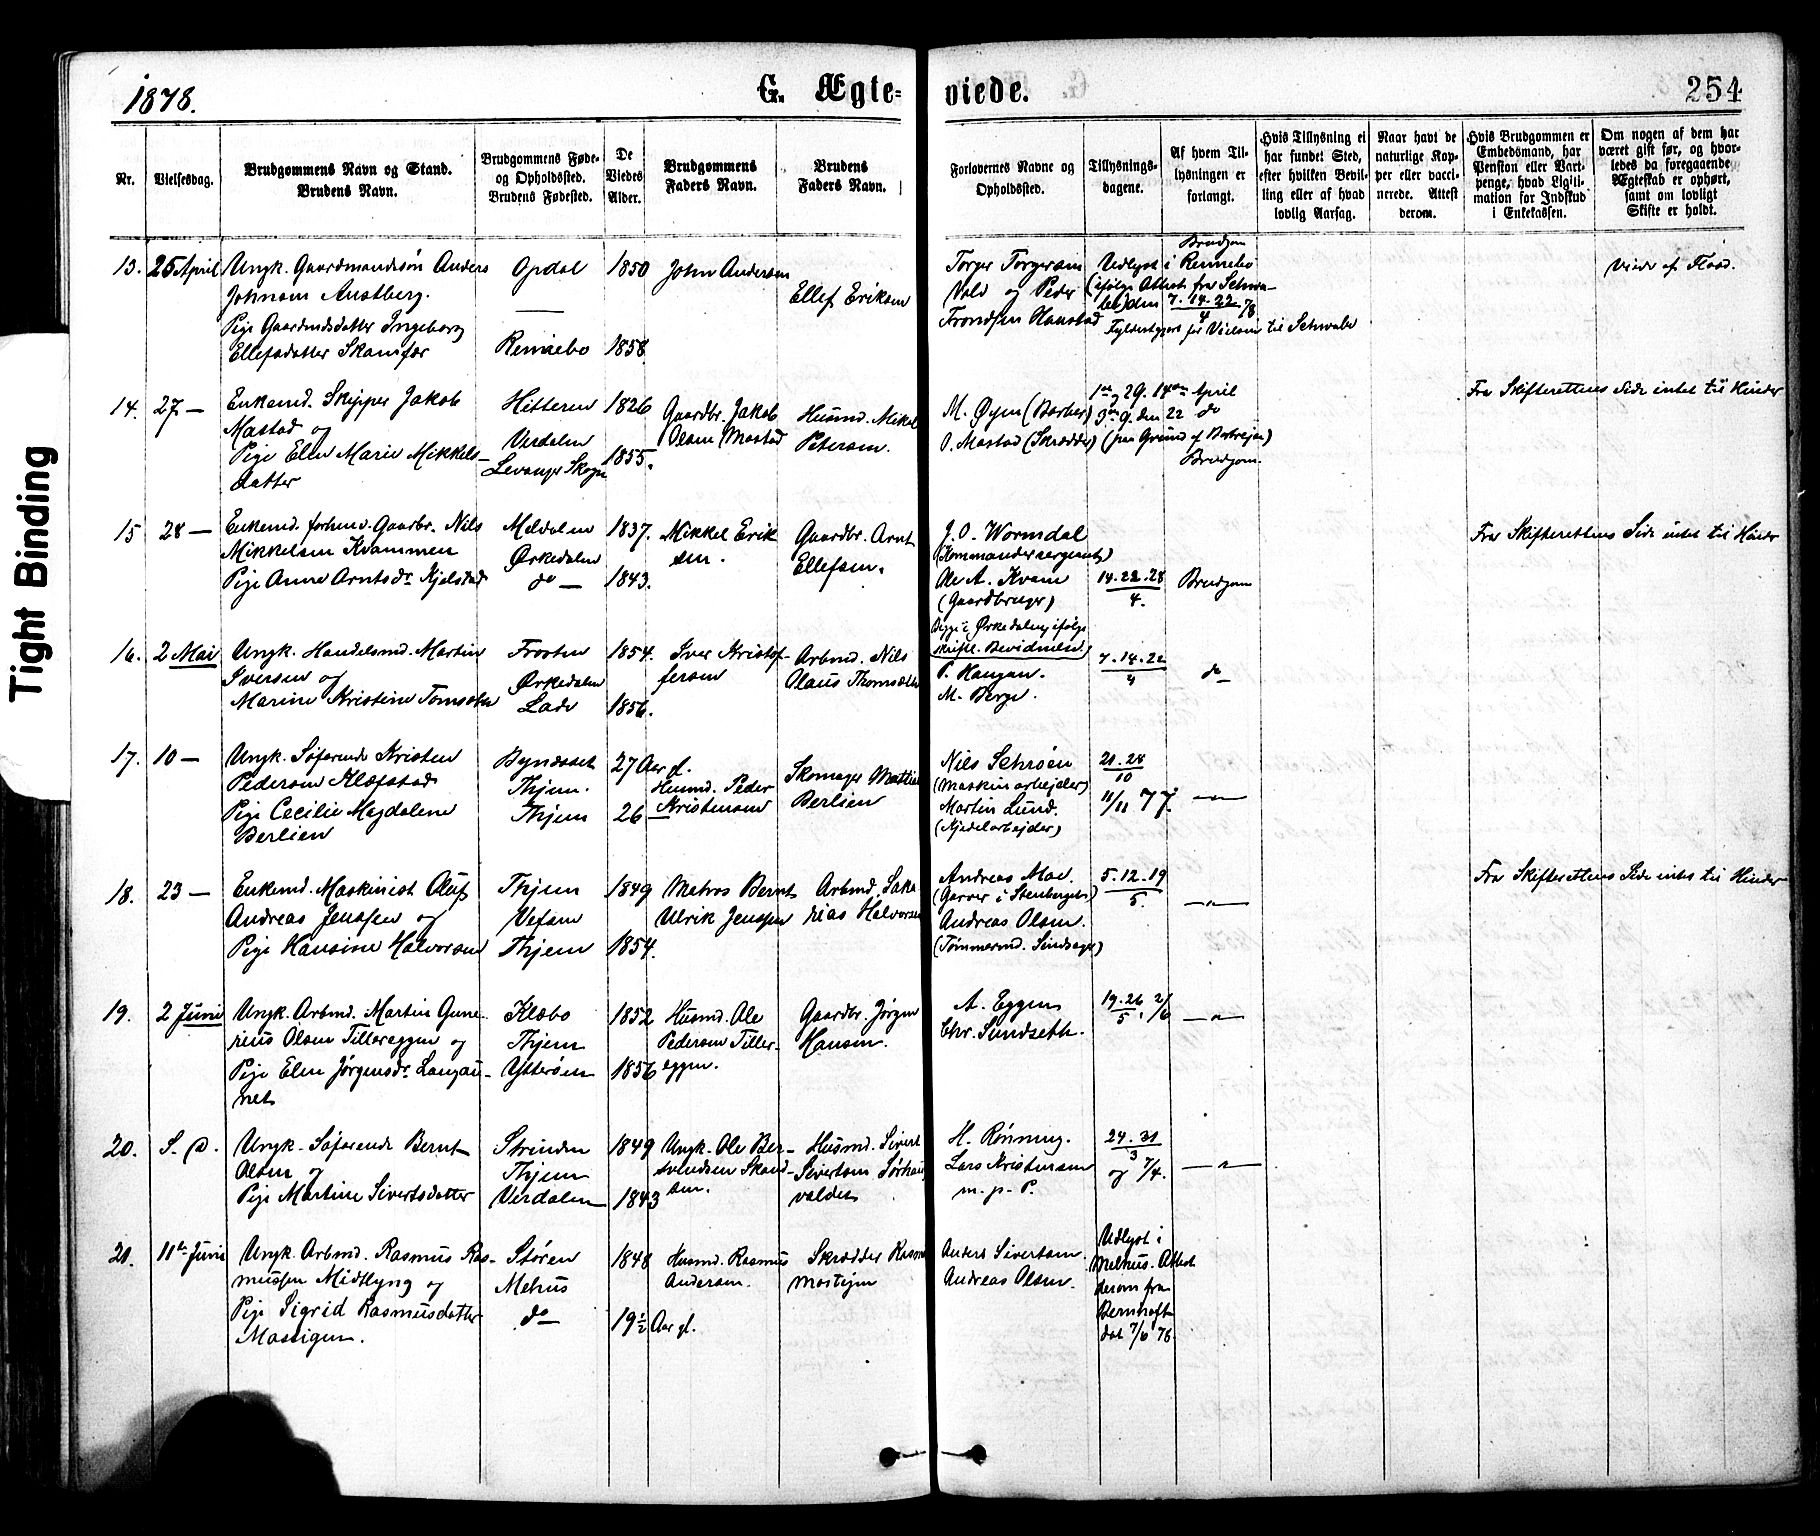 1878.
G. Ægte=
viede.
254
Nr.
Vielsesdag.
Brudgommens Navn og Stand.
Brudens Navn.
Brudgommens Føde-
og Opholdssted.
Brudens Fødested.
De
Viedes
Alder.
Brudgommens
Faders Navn.
Brudens
Faders Navn.
Forlovernes Navne og
Opholdssted.
Tillysnings-
dagene.
Af hvem Til-
lysningen er
forlangt.
Hvis Tillysning ei
har fundet Sted,
efter hvilken Bevil-
ling eller af hvad
lovlig Aarsag.
Naar havt de
naturlige Kop-
per eller vacci-
nerede. Attest
derom.
Hvis Brudgommen er
Embedsmand, har
Pension eller Vart-
penge, hvad Ligiti-
mation for Indskud
i Enkekassen.
Om nogen af dem har
været gift før, og hvor-
ledes da foregaaende
Ægteskab er ophørt,
samt om lovligt
Skifte er holdt.
13. 25 April
Ungk. Gaardmandssøn Anders
Johnsen Austberg.
Pige Gaardmdsdatter Ingeborg
Ellefsdatter Skamfer
Opdal
Rennebo
1850
1858
John Andersen
Ellef Eriksen
Torger Torgersen
Vold og Peder
Trondsen Haustad
Udlyst i Rennebo
(ifølge Attest fra Schwa-
be) den 7.14.22/4 78
Brudgom
til Schwabe
Viede af Flood.
14. 27 —
Enkemd. Skipper Jakob
Mastad og
Pige Elen Marie Mikkels-
datter
Hitteren
Verdalen
Levanger Skogn
1826
1855.
Gaardbr. Jakob
Olsen Mastad
Husmd. Mikal
Petersen.
M. Øyen (Barber)
O. Mastad (Skrædder)
1ste g 29. 14de April
3die g. den 22 do
(paa Grund af Bortreise)
Brudgom.
Fra Skifterettens Side intet til Hinder
15 28 —
Enkemd. forhenv. Gaardbr. Nils
Mikkelsen Kvammen
Pige Anne Arntsdr. Kjelstad
Meldalen
Ørkedalen
do —
1837.
1843.
Mikkel Erik
sen.
Gaardbr. Arnt
Ellefsen.
J. O. Wormdal
(Kommandersergeant)
Ole A. Kvam
(Gaardbruger)
Begge i Ørkedalen, ifølge
skriftl. Bevidnelse.
14.22.28
4.
Brudgom
Fra Skifterettens Side intet til Hinder
16. 2 Mai
Ungk. Handelsmd. Martin
Iversen og
Marine Kristine Tomseth
Frosten
Ørkedalen
Lade
1854.
1856.
Iver Kristof-
fersen
Arbmd. Nils
Olaus Thomseth
P. Haugan.
M. Berge.
7.14.22
4
do —
17. 10 —
Ungk. Søfarende Kristen
Pedersen Klefstad
Pige Cecilie Magdalene
Berlien
Bynesset
Thjem.
Thjem
27 Aar gl.
26 —
Husmd. Peder
Kristensen
Skomager Mattias
Berlien
Nils Schrøen
(Maskinarbejder)
Martin Lund.
21.28
10
11/11 77.
—"—
18. 23 —
Enkemd. Maskinist Oluf
Andreas Jenssen og
Pige Hansine Halvorsen
Thjem
Vefsen
Thjem
1849
1854.
Matros Bernt
Ulrik Jenssen
Arbmd. Saka
rias Halvorsen
Andreas Moe.
(Garver i Stenberget)
Andreas Olsen.
5.12.19
5.
—"—
Fra Skifterettens Side intet til Hinder
19. 2 Juni
Ungk. Arbmd. Martin Gune-
rius Olsen Tillereggen og
Pige Elen Jørgensdr. Langau-
net
Klæbo
Thjem
Ytterøen
1852
1856
Husmd. Ole
Pedersen Tiller-
eggen.
Gaardbr. Jørgen
Hansen.
A. Eggen
Chr. Sundseth.
19.26 2/6
5.
—"—
20. S. D.
Ungk. Søfarende Bernt
Olsen og
Pige Martine Sivertsdatter
Strinden
Thjem
Verdalen
1849
1843
Ungk. Ole Ber-
Husmd. Sivert
Sivertsen Sørhau
valdet
H. Rønning.
Lars Kristensen
m. p. P.
24.31
3
og 7/4.
—"—
21. 11te Juni
Ungk. Arbmd. Rasmus Ras-
mussen Midtlyng og
Pige Sigrid Rasmusdatter
Mastigen.
Støren
Melhus
do —
1848
19½ Aar gl.
Husmd. Rasmus
Andersen.
Skrædder Rasmus
Mastigen
Anders Sivertsen.
Andreas Olsen.
Udlyst i
Melhus. Attest
derom fra
Bernhoft
dat 7/6 78.
Tight Binding